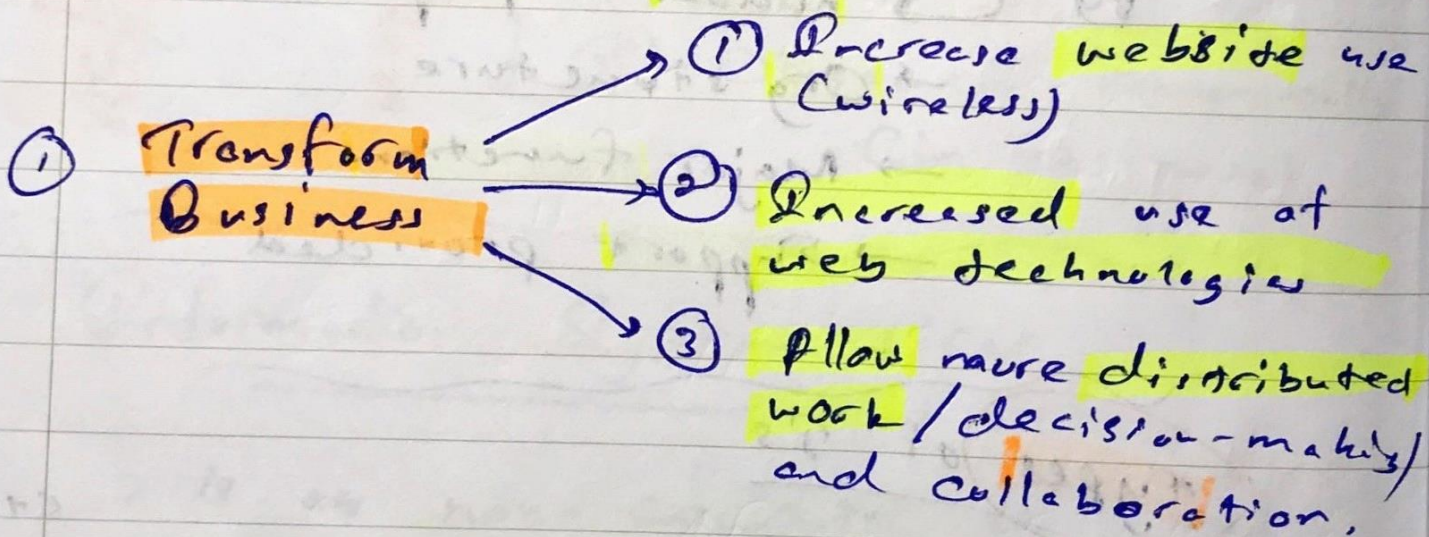 ① Transform
Business
① Increase website use
(wireless)
② Increased use of
web technologies
③ Allow more distributed
work/decision-making/
and collaboration.